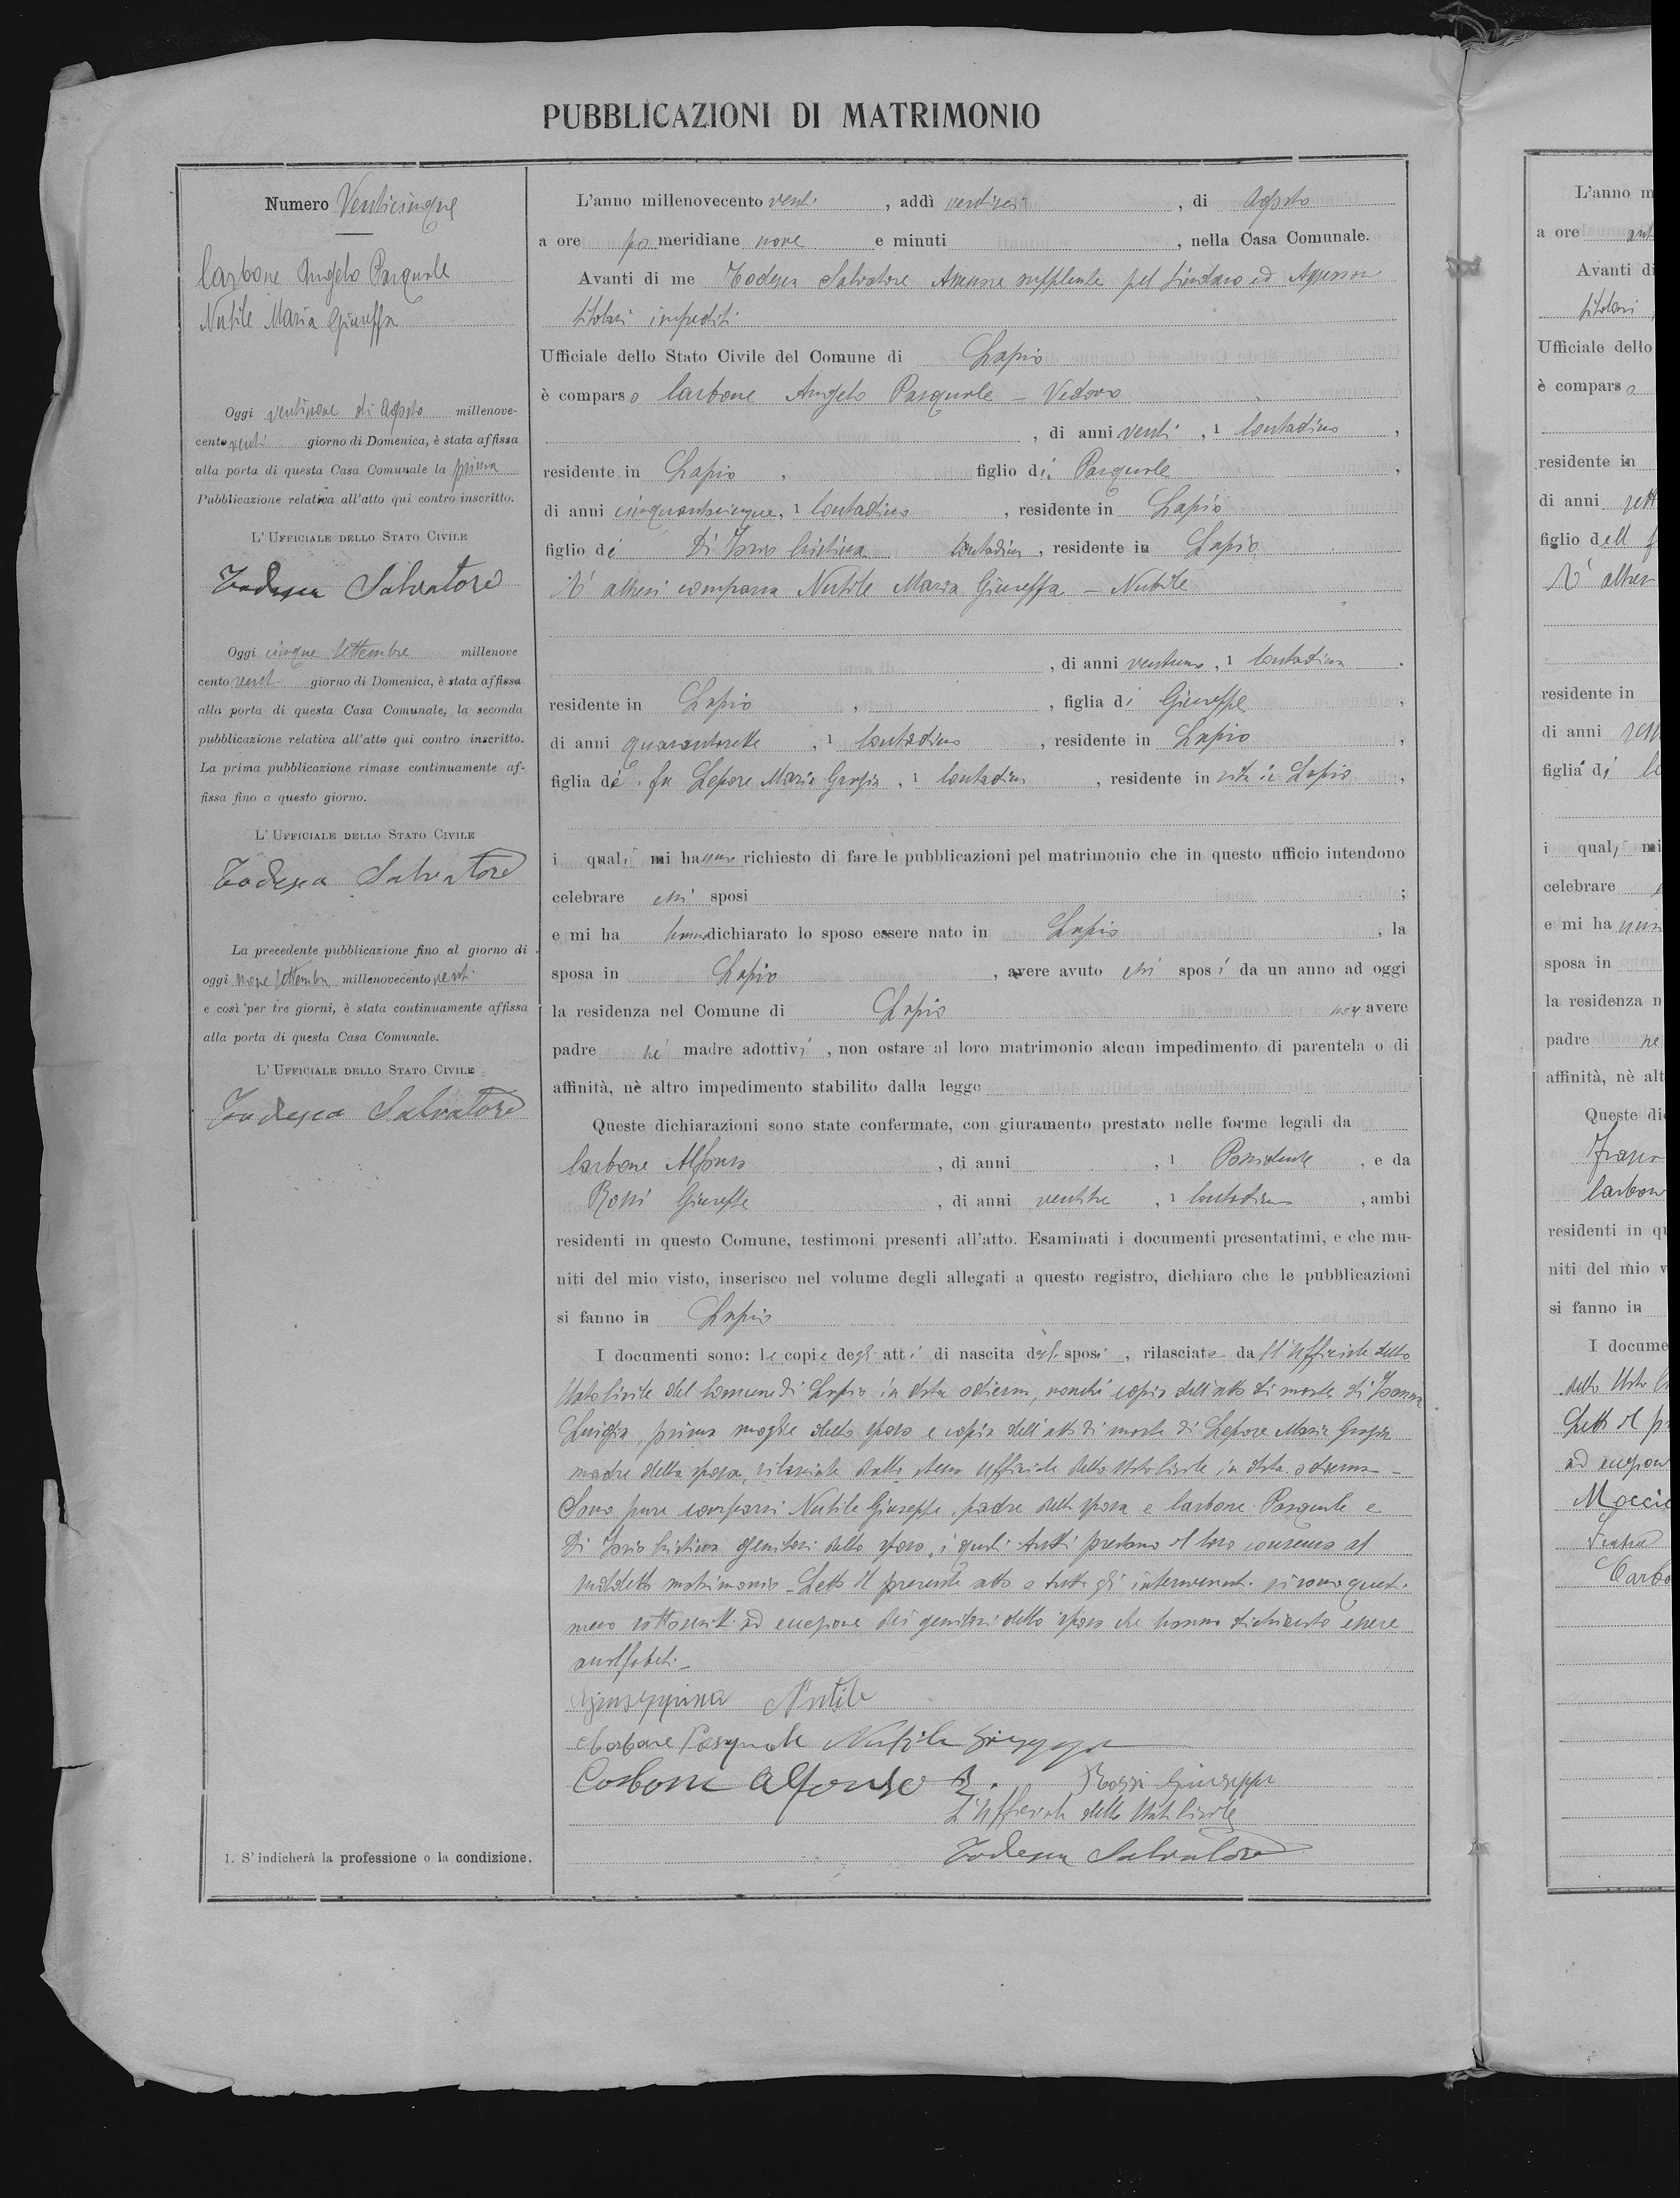 PUBBLICAZIONI DI MATRIMONIO
Numero Venticinque
Carbone Angelo Pasquale
Nutile Maria Giuseppa
Oggi ventinove di Agosto millenove-
cento venti giorno di Domenica, è stata affissa
alla porta di questa Casa Comunale la prima
Pubblicazione relativa all'atto qui contro inscritto.
L'UFFICIALE DELLO STATO CIVILE
Todesca Salvatore
Oggi cinque Settembre millenove
cento venti giorno di Domenica, è stata affissa
alla porta di questa Casa Comunale, la seconda
pubblicazione relativa all'atto qui contro inscritto.
La prima pubblicazione rimase continuamente af-
fissa fino a questo giorno.
L'UFFICIALE DELLO STATO CIVILE
Todesca Salvatore
La precedente pubblicazione fino al giorno di
oggi nove Settembre millenovecento venti
e così per tre giorni, è stata continuamente affissa
alla porta di questa Casa Comunale.
L'UFFICIALE DELLO STATO CIVILE
Todesca Salvatore
1. S'indicherà la professione o la condizione.
L'anno millenovecento venti, addì ventisei, di Agosto
a ore po meridiane nove e minuti, nella Casa Comunale.
Avanti di me Todesca Salvatore Assessore supplente pel Sindaco ed Assessori
titolari impediti
Ufficiale dello Stato Civile del Comune di Lapio
è comparso Carbone Angelo Pasquale – Vedovo
, di anni venti, 1 Contadino,
residente in Lapio, figlio di Pasquale,
di anni cinquantacinque, 1 Contadino, residente in Lapio
figlio di Di Iorio Cristina Contadina, residente in Lapio
È altresì comparsa Nutile Maria Giuseppa – Nubile
, di anni ventuno, 1 Contadina.
residente in Lapio, , figlia di Giuseppe,
di anni quarantasette, 1 Contadino, residente in Lapio,
figlia di fu Lepore Maria Grazia, 1 Contadina, residente in vita in Lapio,
i quali mi hanno richiesto di fare le pubblicazioni pel matrimonio che in questo ufficio intendono
celebrare essi sposi ;
e mi hanno dichiarato lo sposo essere nato in Lapio, la
sposa in Lapio, avere avuto essi sposi da un anno ad oggi
la residenza nel Comune di Lapio non avere
padre né madre adottivi, non ostare al loro matrimonio alcun impedimento di parentela o di
affinità, nè altro impedimento stabilito dalla legge
Queste dichiarazioni sono state confermate, con giuramento prestato nelle forme legali da
Carbone Alfonso, di anni , 1 Possidente, e da
Rossi Giuseppe, di anni ventitre, 1 Contadino, ambi
residenti in questo Comune, testimoni presenti all'atto. Esaminati i documenti presentatimi, e che mu-
niti del mio visto, inserisco nel volume degli allegati a questo registro, dichiaro che le pubblicazioni
si fanno in Lapio
I documenti sono: le copie degli atti di nascita degli sposi, rilasciate dall'Ufficiale dello
Stato Civile del Comune di Lapio in data odierna, nonchè copia dell'atto di morte di
Luigia, prima moglie dello sposo e copia dell'atto di morte di Lepore Maria Grazia
madre della sposa, rilasciate dallo stesso Ufficiale dello Stato Civile in data odierna –
Sono pure comparsi Nutile Giuseppe padre della sposa e Carbone Pasquale e
Di Iorio Cristina genitori dello sposo, i quali tutti prestano il loro consenso al
suddetto matrimonio – Letto il presente atto a tutti gli intervenuti si sono questi
meco sottoscritti ad eccezione dei genitori dello sposo che hanno dichiarato essere
analfabeti –
Giuseppina Nutile
Carbone Pasquale Nutile Giuseppe
Carbone Alfonso Rossi Giuseppe
L'Ufficiale dello Stato Civile
Todesca Salvatore
L'anno m
a ore ant
Avanti di
titolari
Ufficiale dello
è comparso
residente in
di anni
figlio dell
È altres
residente in
di anni
figlia di
i quali mi
celebrare
e mi hanno
sposa in
la residenza n
padre ne
affinità, nè alt
Queste dic
Carbone
residenti in qu
niti del mio v
si fanno in
I docume
dello Stato
Letto il pr
ad eccezion
Carbo